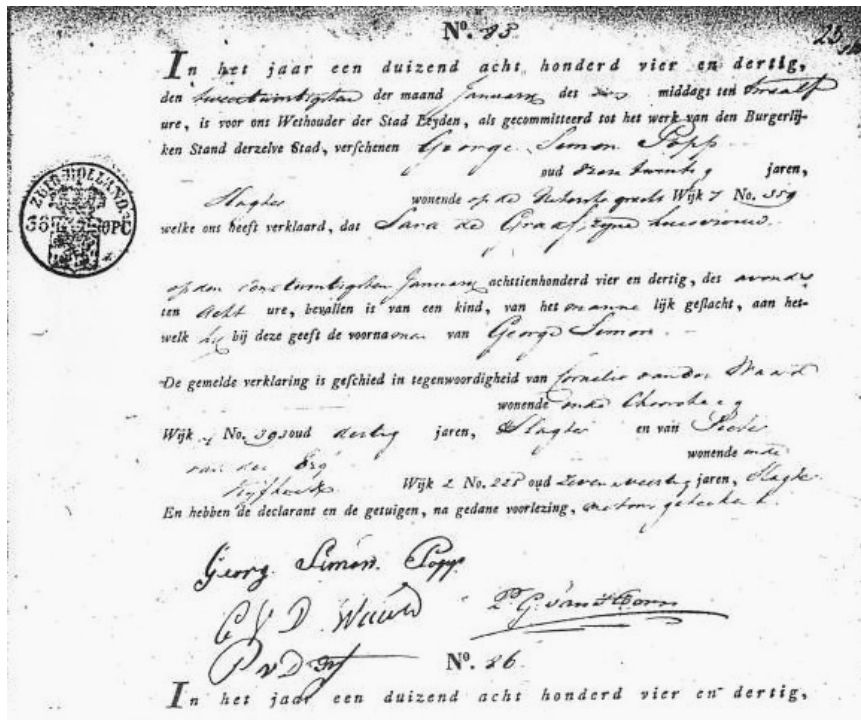 No. 85
25
In het jaar een duizend acht honderd vier en dertig,
den tweeentwintigsten der maand Januarij des middags ten twaalf
ure, is voor ons Wethouder der Stad Leyden, als gecommitteerd tot het werk van den Burgerlij-
ken Stand derzelve Stad, verschenen George Simon Popp
oud twintig jaren,
Slagter wonende op de Uiterste gracht Wijk 7 No. 359
welke ons heeft verklaard, dat Sara de Graaf, zyne huisvrouw.
ZUID HOLLAND
OPC
op den eenentwintigsten Januarij achttienhonderd vier en dertig, des avonds
ten acht ure, bevallen is van een kind, van het manne lijk geslacht, aan het-
welk hij bij deze geeft de voornamen van George Simon.
De gemelde verklaring is geschied in tegenwoordigheid van Cornelis van der Waard
wonende
Wijk No. 393 oud dertig jaren, Slagter en van Pieter
van der wonende
Wijk 2 No. 225 oud zevenenveertig jaren, Slagter
En hebben de declarant en de getuigen, na gedane voorlezing, met ons geteekend.
Georg. Simon. Popp
C V D Waard
P v D
No. 86.
In het jaar een duizend acht honderd vier en dertig,